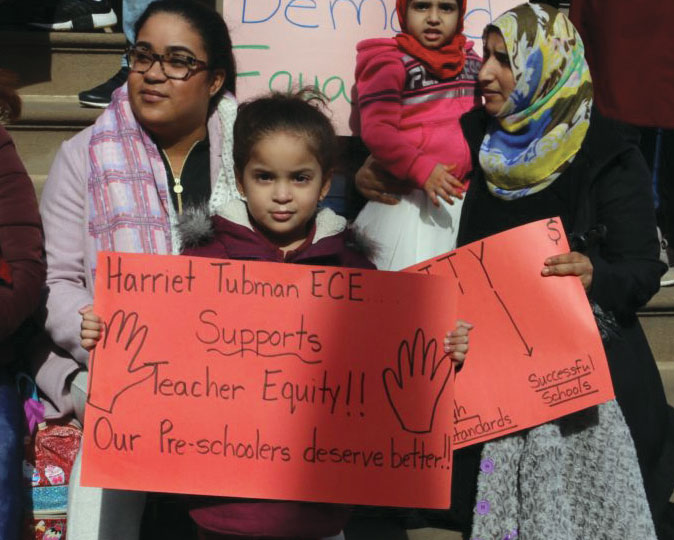 Demand
Equa
Harriet Tubman ECE...
Supports
Teacher Equity!!
Our Pre-schoolers deserve better!!
ITY
$
Successful
Schools
standards